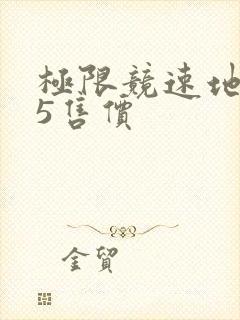 極限競速地
5售價
金貿